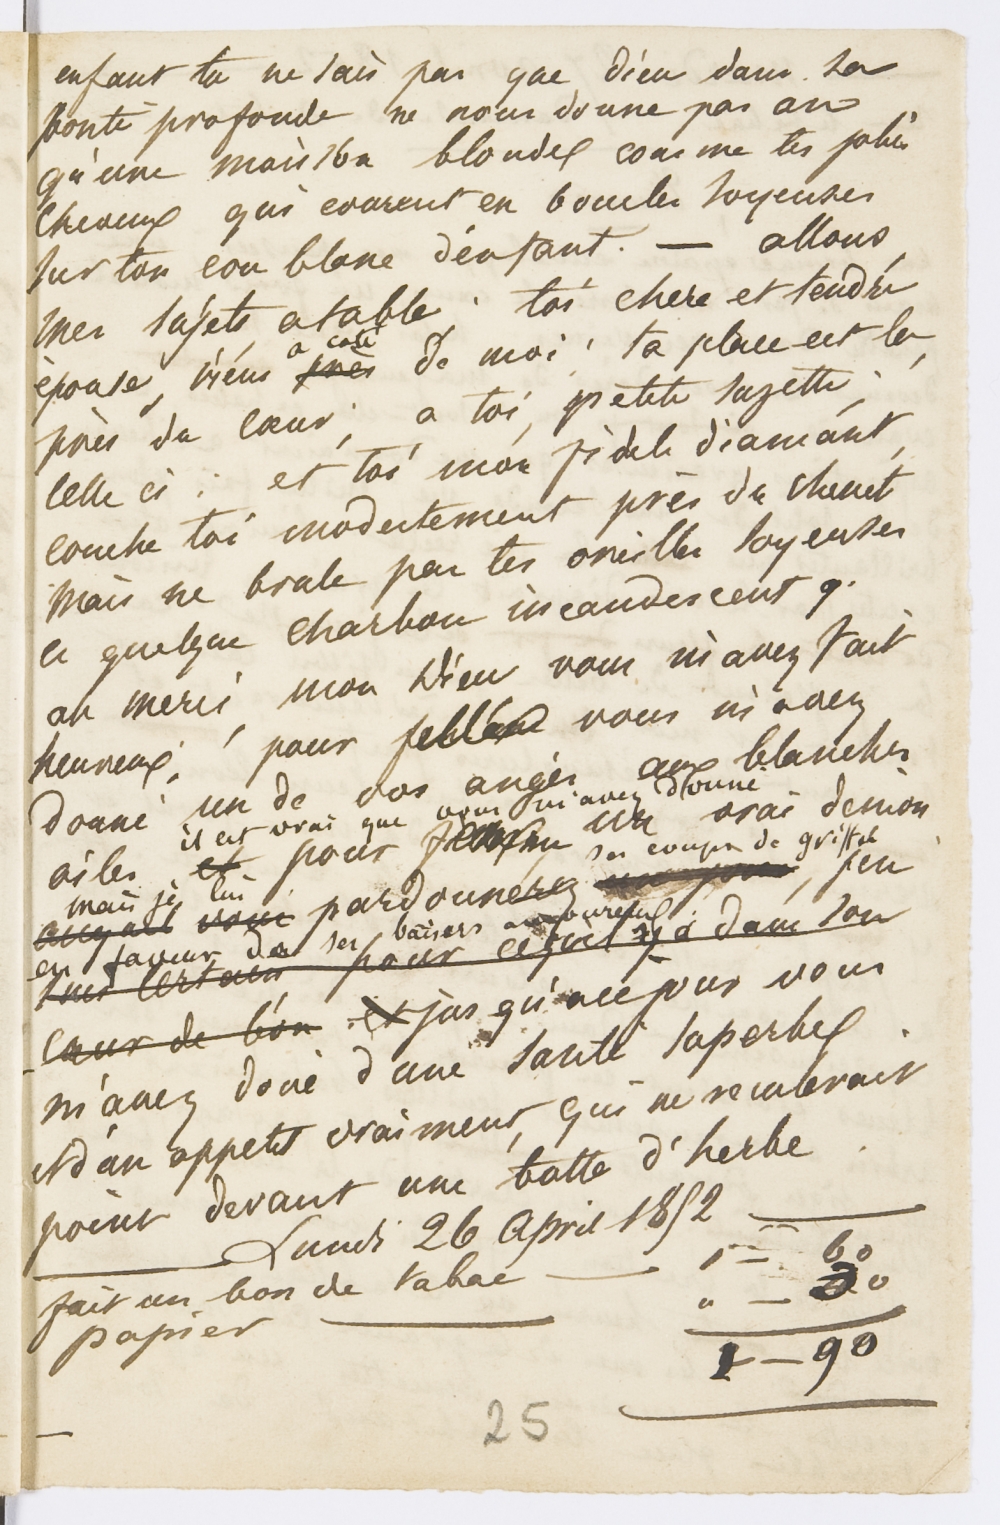 enfant tu ne sais pas que dieu dans sa
bonté profonde ne nous donne pas an
qu'une moisson blondes comme tes jolis
cheveux qui courent en boucles soyeuses
sur ton cou blanc d'enfant. — allons,
mes sujets, a table ; toi chere et tendre
a coté
épouse, viens près de moi ; ta place est la,
près du cœur ; a toi, petite suzette ;
celle ci ; et toi mon fidele diamant,
couche toi modestement près du chenet
mais ne brule pas tes oreilles soyeuses
a quelque charbon incandescent
ah merci, mon Dieu vous m'avez fait
heureux ! pour vous m'avez
donné un de vos anges aux blanches
il est vrai que vous m'avez donné
ailes et pour un vrai demon
ses coups de griffes
mais je lui
vous pardonnerez un jour, j'en
en faveur de ses baisers amoureux
suis certain pour ce qu'il y a dans son
cœur de bon et jusqu'a ce jour vous
m'avez doué d'une santé superbes
et d'un appetit vraiment, qui ne reculerait
point devant une botte d'herbe .
Lundi 26 April 1852
fait un bon de tabac — 1 — 60
papier — " — 30
1 — 90
25